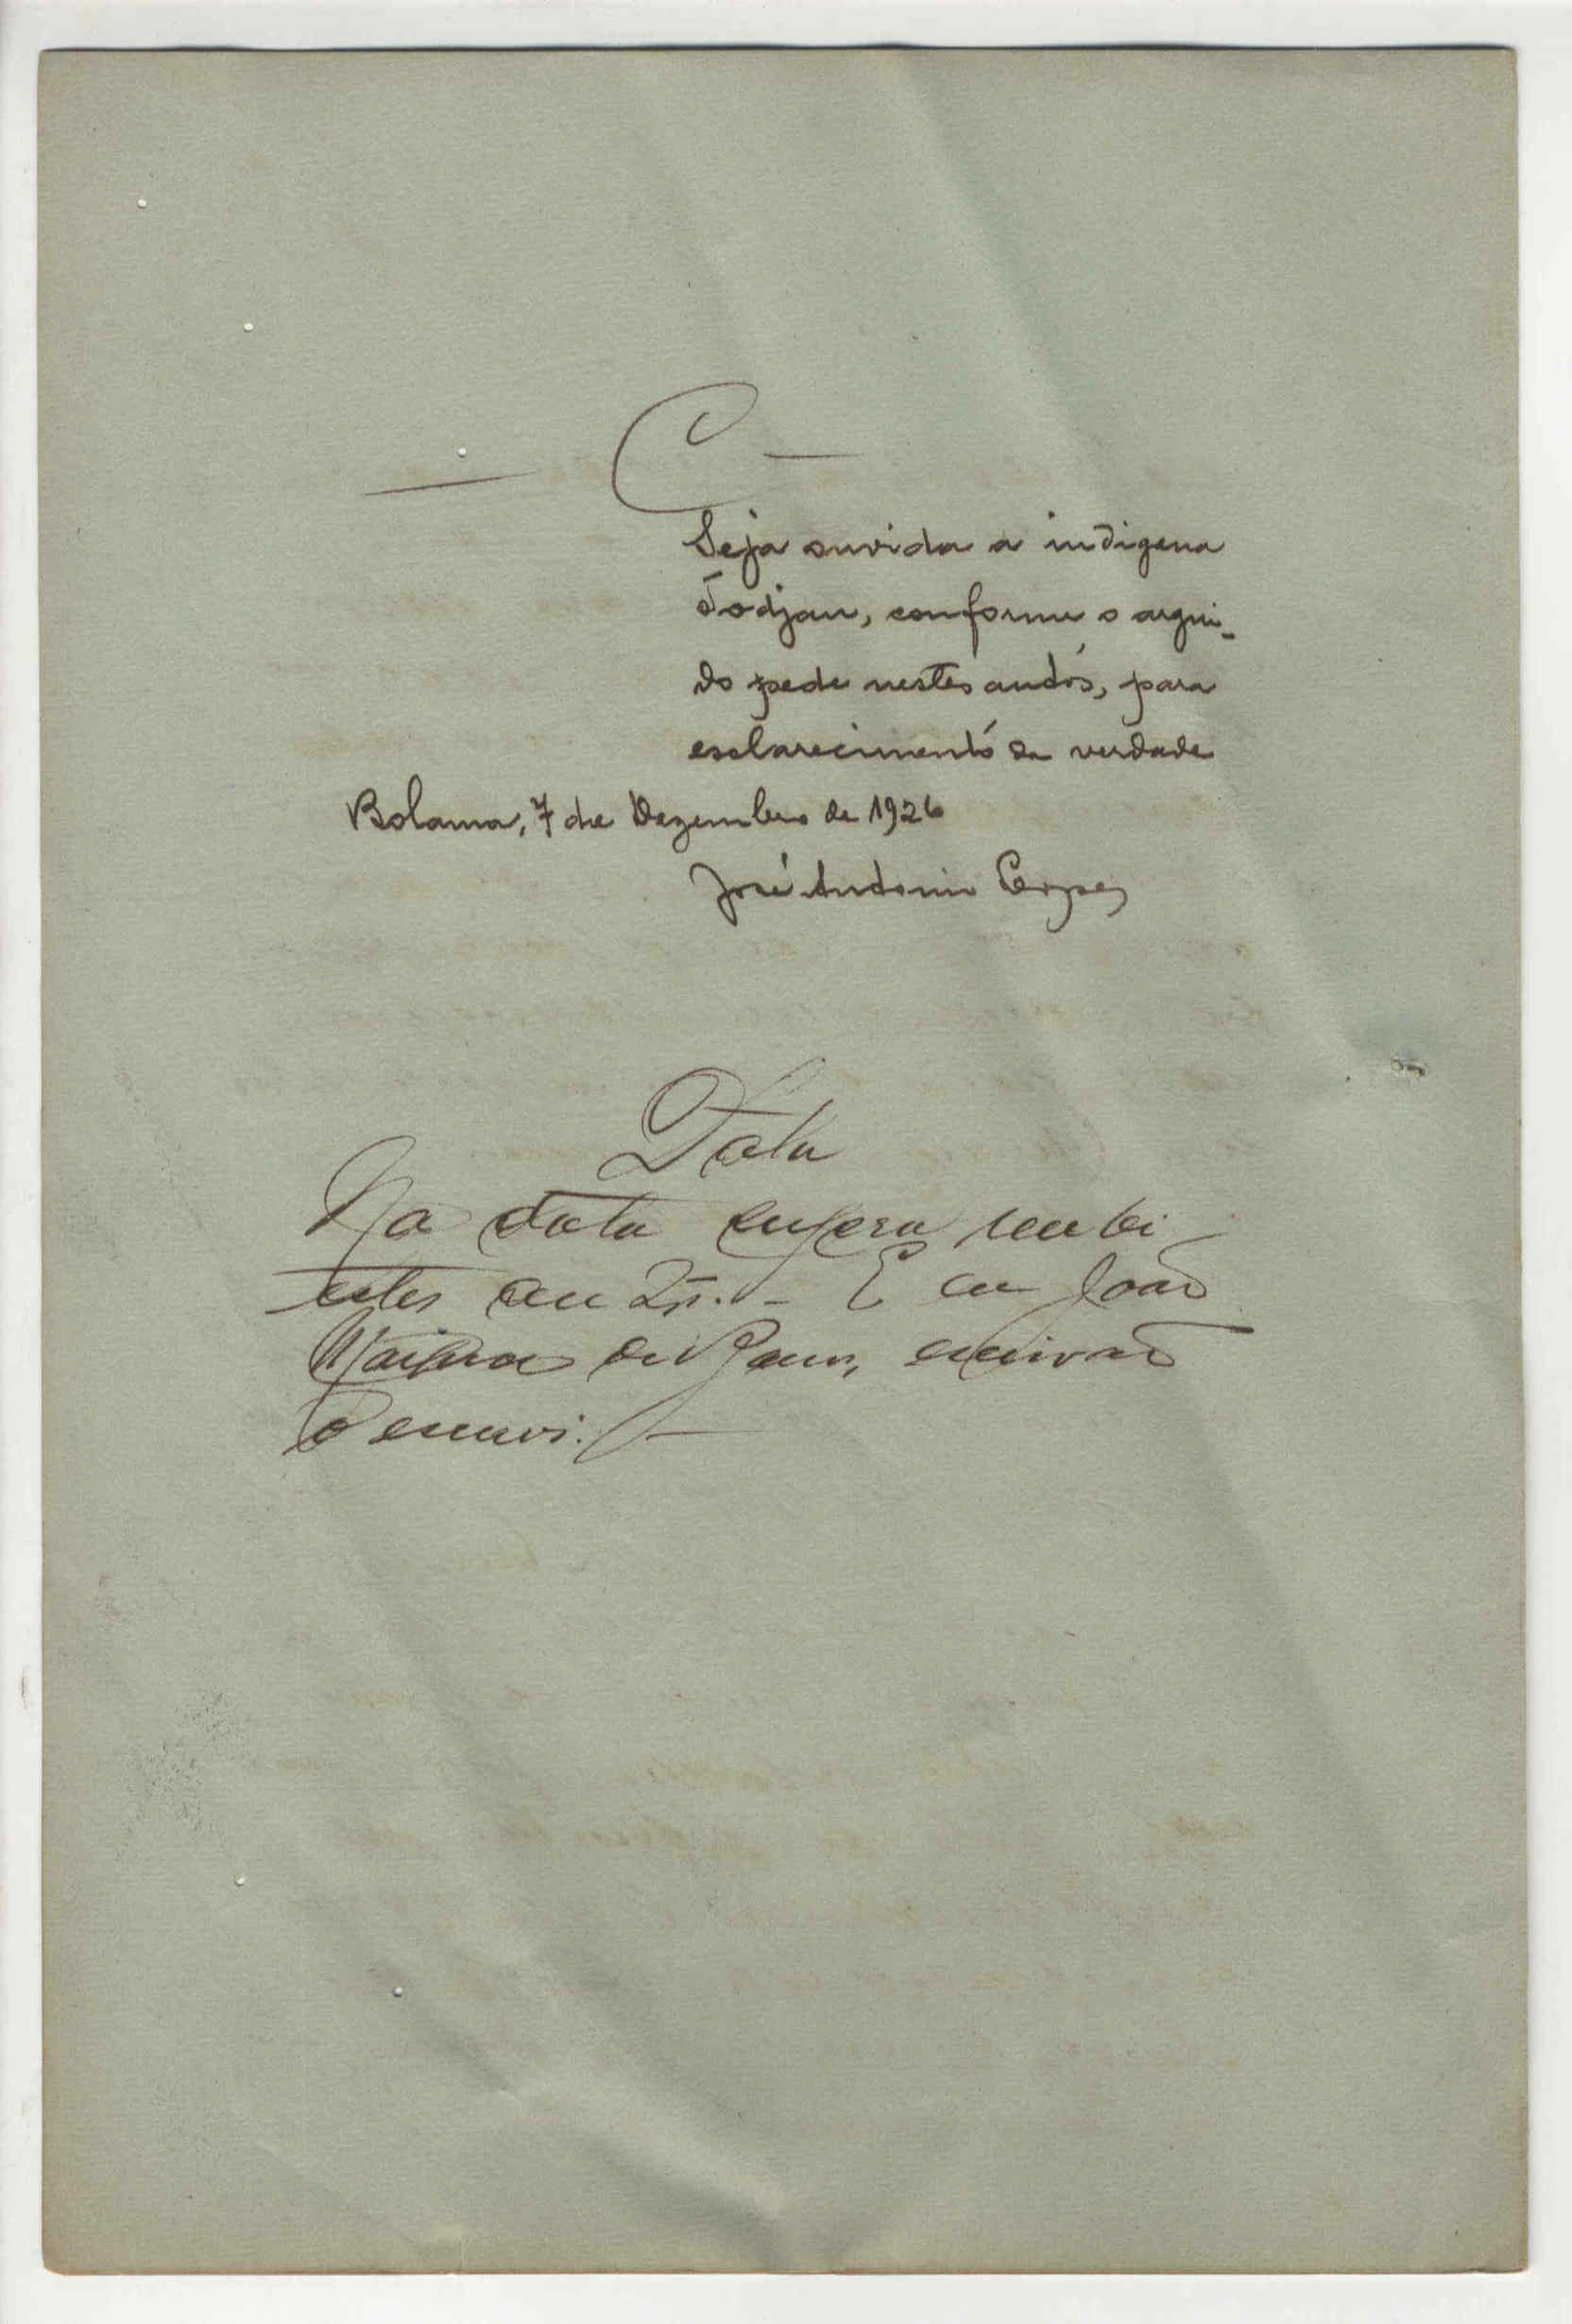 C
Seja ouvida a indigena
Todjan, conforme o argui-
do pede nestes autos, para
esclarecimento da verdade
Bolama, 7 de Dezembro de 1926
José Antonio
Data
Na data supra recebi
estes autos. - E eu João
de escrivão
o escrevi.